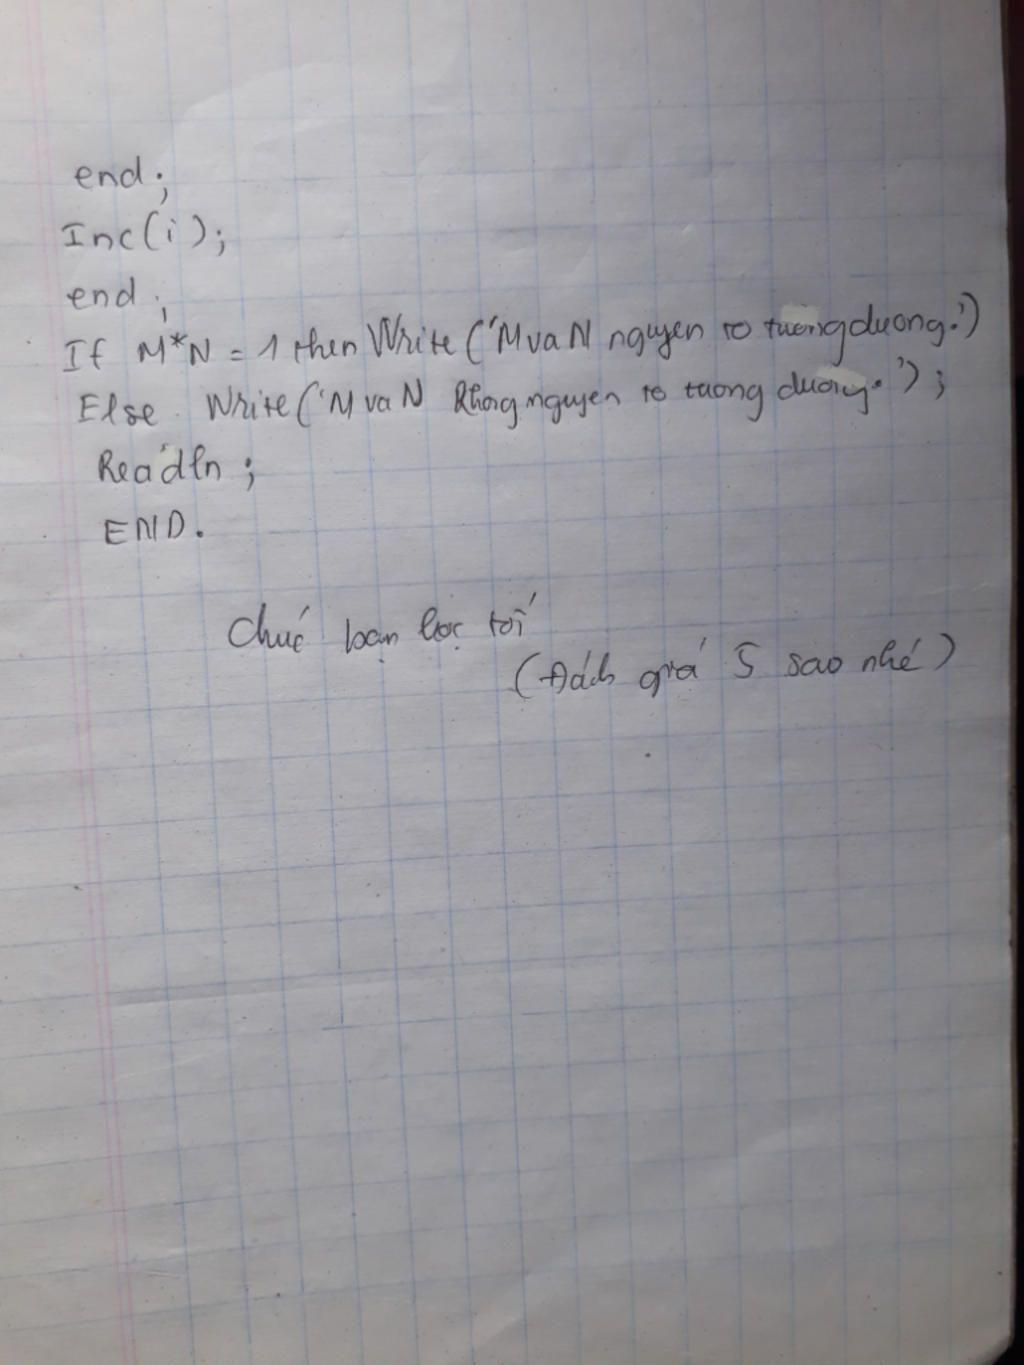 end;
Inc(i);
end;
If M*N = 1 then Write('M va N nguyen to tuong duong.')
Else Write('M va N khong nguyen to tuong duong.');
Readln;
END.
Chúc bạn học tốt
(Đánh giá 5 sao nhé)